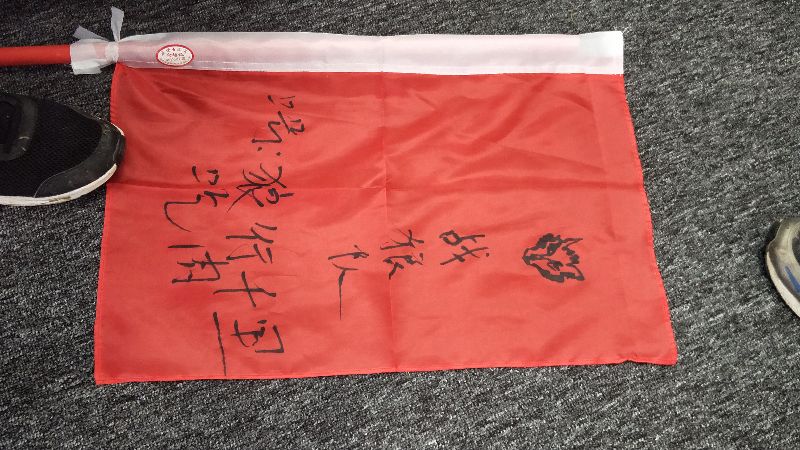 战狼队
口号:狼行千里
吃肉